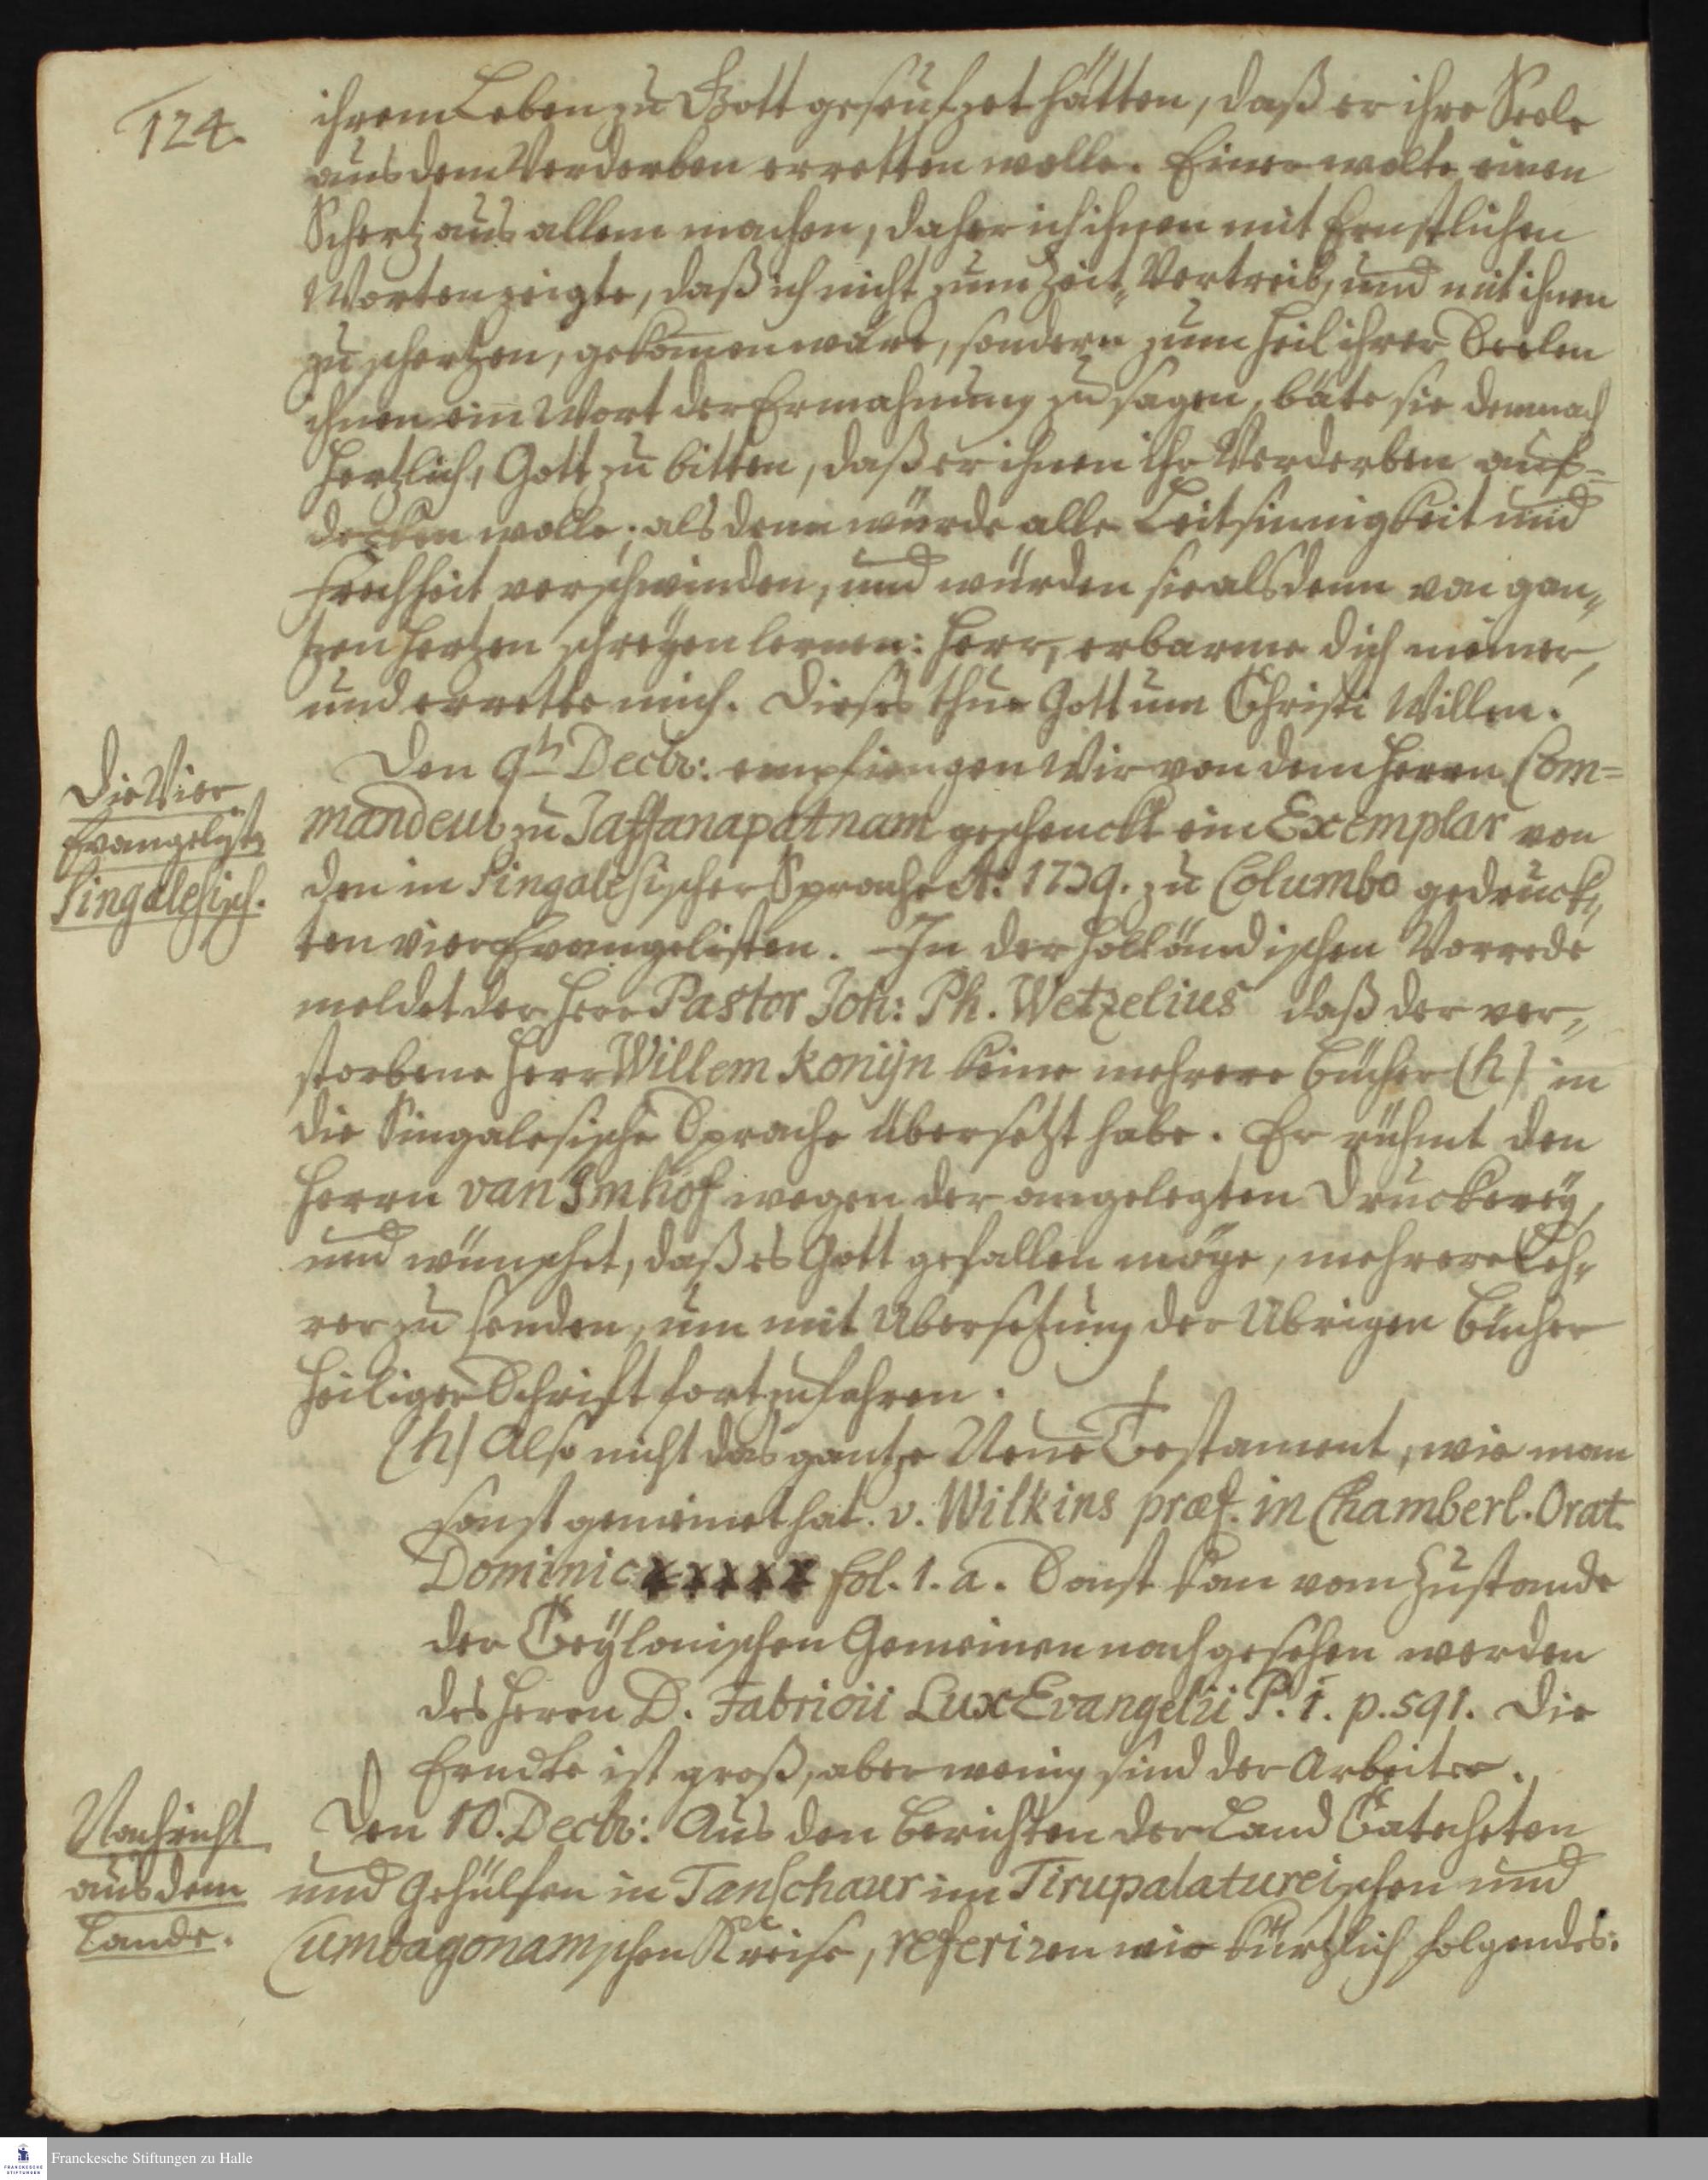 124.
ihrem Leben zu Gott geseufzet hätten, daß er ihre Seele
aus dem Verderben erretten wolle. Einer wolte einen
Schertz aus allem machen, daher ich ihnen mit Ernstlichen
Worten zeigte, daß ich nicht zum Zeit„Vertreib, und mit ihnen
zu schertzen, gekom̄en wäre, sondern zum Heil ihrer Seelen
ihnen ein Wort der Ermahnung zu sagen, bäte sie demnach
hertzlich, Gott zu bitten, daß er ihnen ihr Verderben auf=
decken wolle; als denn würde alle Leitsinnigkeit und
Frechheit verschwinden, und würden sie alsdenn von gan„
tzen Hertzen schreyen lernen: Herr, erbarme dich meiner,
und errette mich. Dieses thue Gott um Christi Willen.
Die Vier
Evangelisten
Singalesisch.
Den 9th Decbr: empfiengen Wir von dem Herrn Com=
mandeur zu Jaffanapatnam geschenckt ein Exemplar von
den in Singalesischer Sprache Ao: 1739. zu Columbo gedruck„
ten vier Evangelisten. In der Holländischen Vorrede
meldet der Herr Pastor Joh: Ph. Wetzelius daß der ver„
storbene Herr Willem Konijn keine mehrere Bücher (h) in
die Singalesische Sprache übersetzt habe. Er rühmt den
Herrn van Imhof wegen der angelegten Druckerey,
und wünschet, daß es Gott gefallen möge, mehrere Leh„
rer zu senden, um mit Ubersetzung der Ubrigen Bücher
Heiliger Schrifft fortzufahren.
(h) Also nicht das gantze Neue Testament, wie man
sonst gemeinet hat. v. Wilkins præf. in Chamberl. Orat.
Dominic fol. 1. a. Sonst kan vom Zustande
der Ceylonischen Gemeinen nachgesehen werden
des Herrn D. Fabricii Lux Evangelii P. 1. p. 591. Die
Erndte ist groß, aber wenig sind der Arbeiter.
Nachricht
aus dem
Lande.
Den 10. Decbr: Aus den Berichten der Land Catecheten
und Gehülfen in Tanschaur im Tirupalatureischen und
Cumbagonamschen Kreise, referiren wir kürtzlich folgendes:
FRANCKESCHE
STIFTUNGEN
Franckesche Stiftungen zu Halle